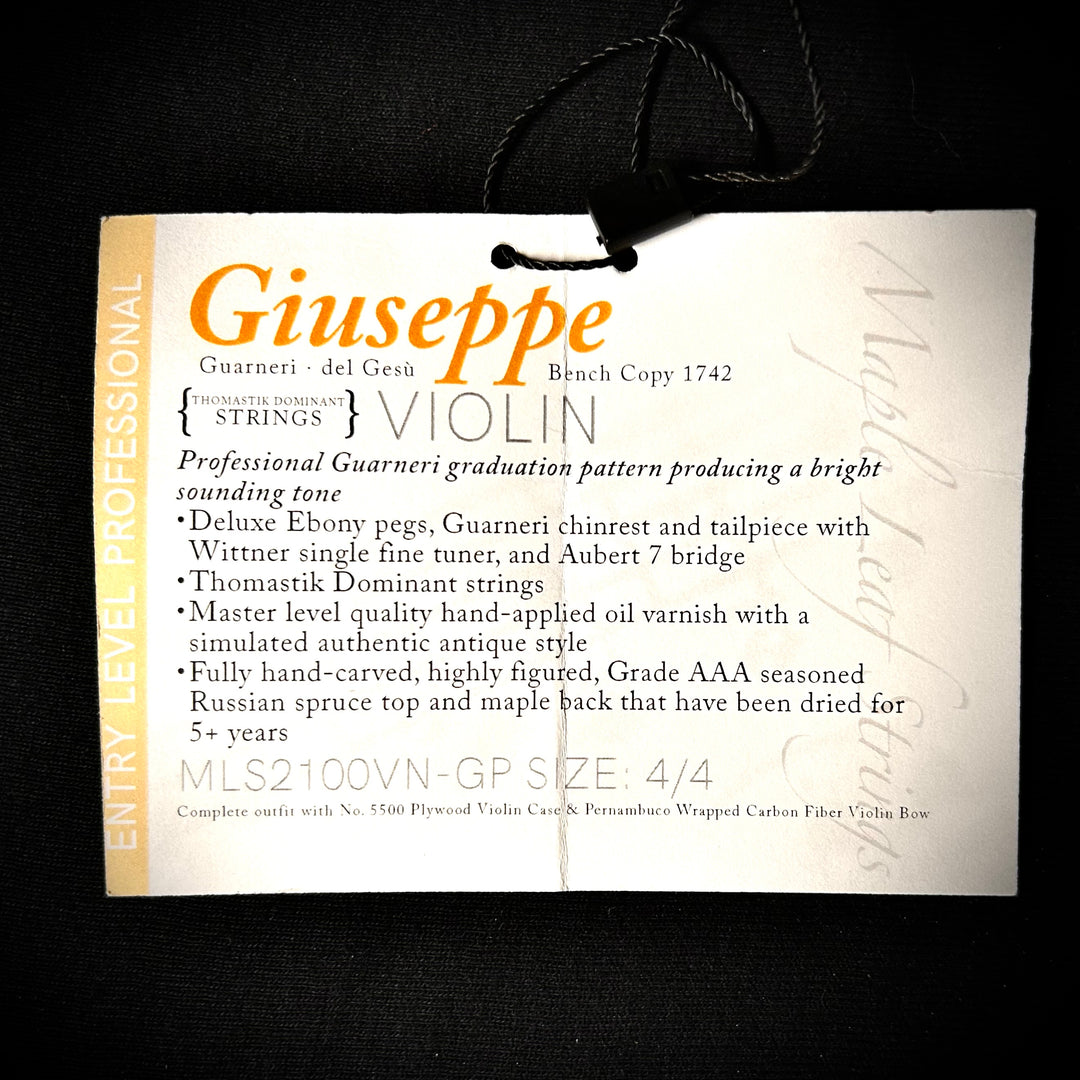 ENTRY LEVEL PROFESSIONAL
Giuseppe
Guarneri · del Gesù
Bench Copy 1742
{THOMASTIK DOMINANT
STRINGS}
VIOLIN
Professional Guarneri graduation pattern producing a bright
sounding tone
•Deluxe Ebony pegs, Guarneri chinrest and tailpiece with
Wittner single fine tuner, and Aubert 7 bridge
•Thomastik Dominant strings
•Master level quality hand-applied oil varnish with a
simulated authentic antique style
•Fully hand-carved, highly figured, Grade AAA seasoned
Russian spruce top and maple back that have been dried for
5+ years
MLS2100VN-GP SIZE: 4/4
Complete outfit with No. 5500 Plywood Violin Case & Pernambuco Wrapped Carbon Fiber Violin Bow
Maple Leaf Strings